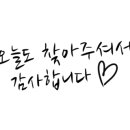 오늘도 찾아주셔서
감사합니다